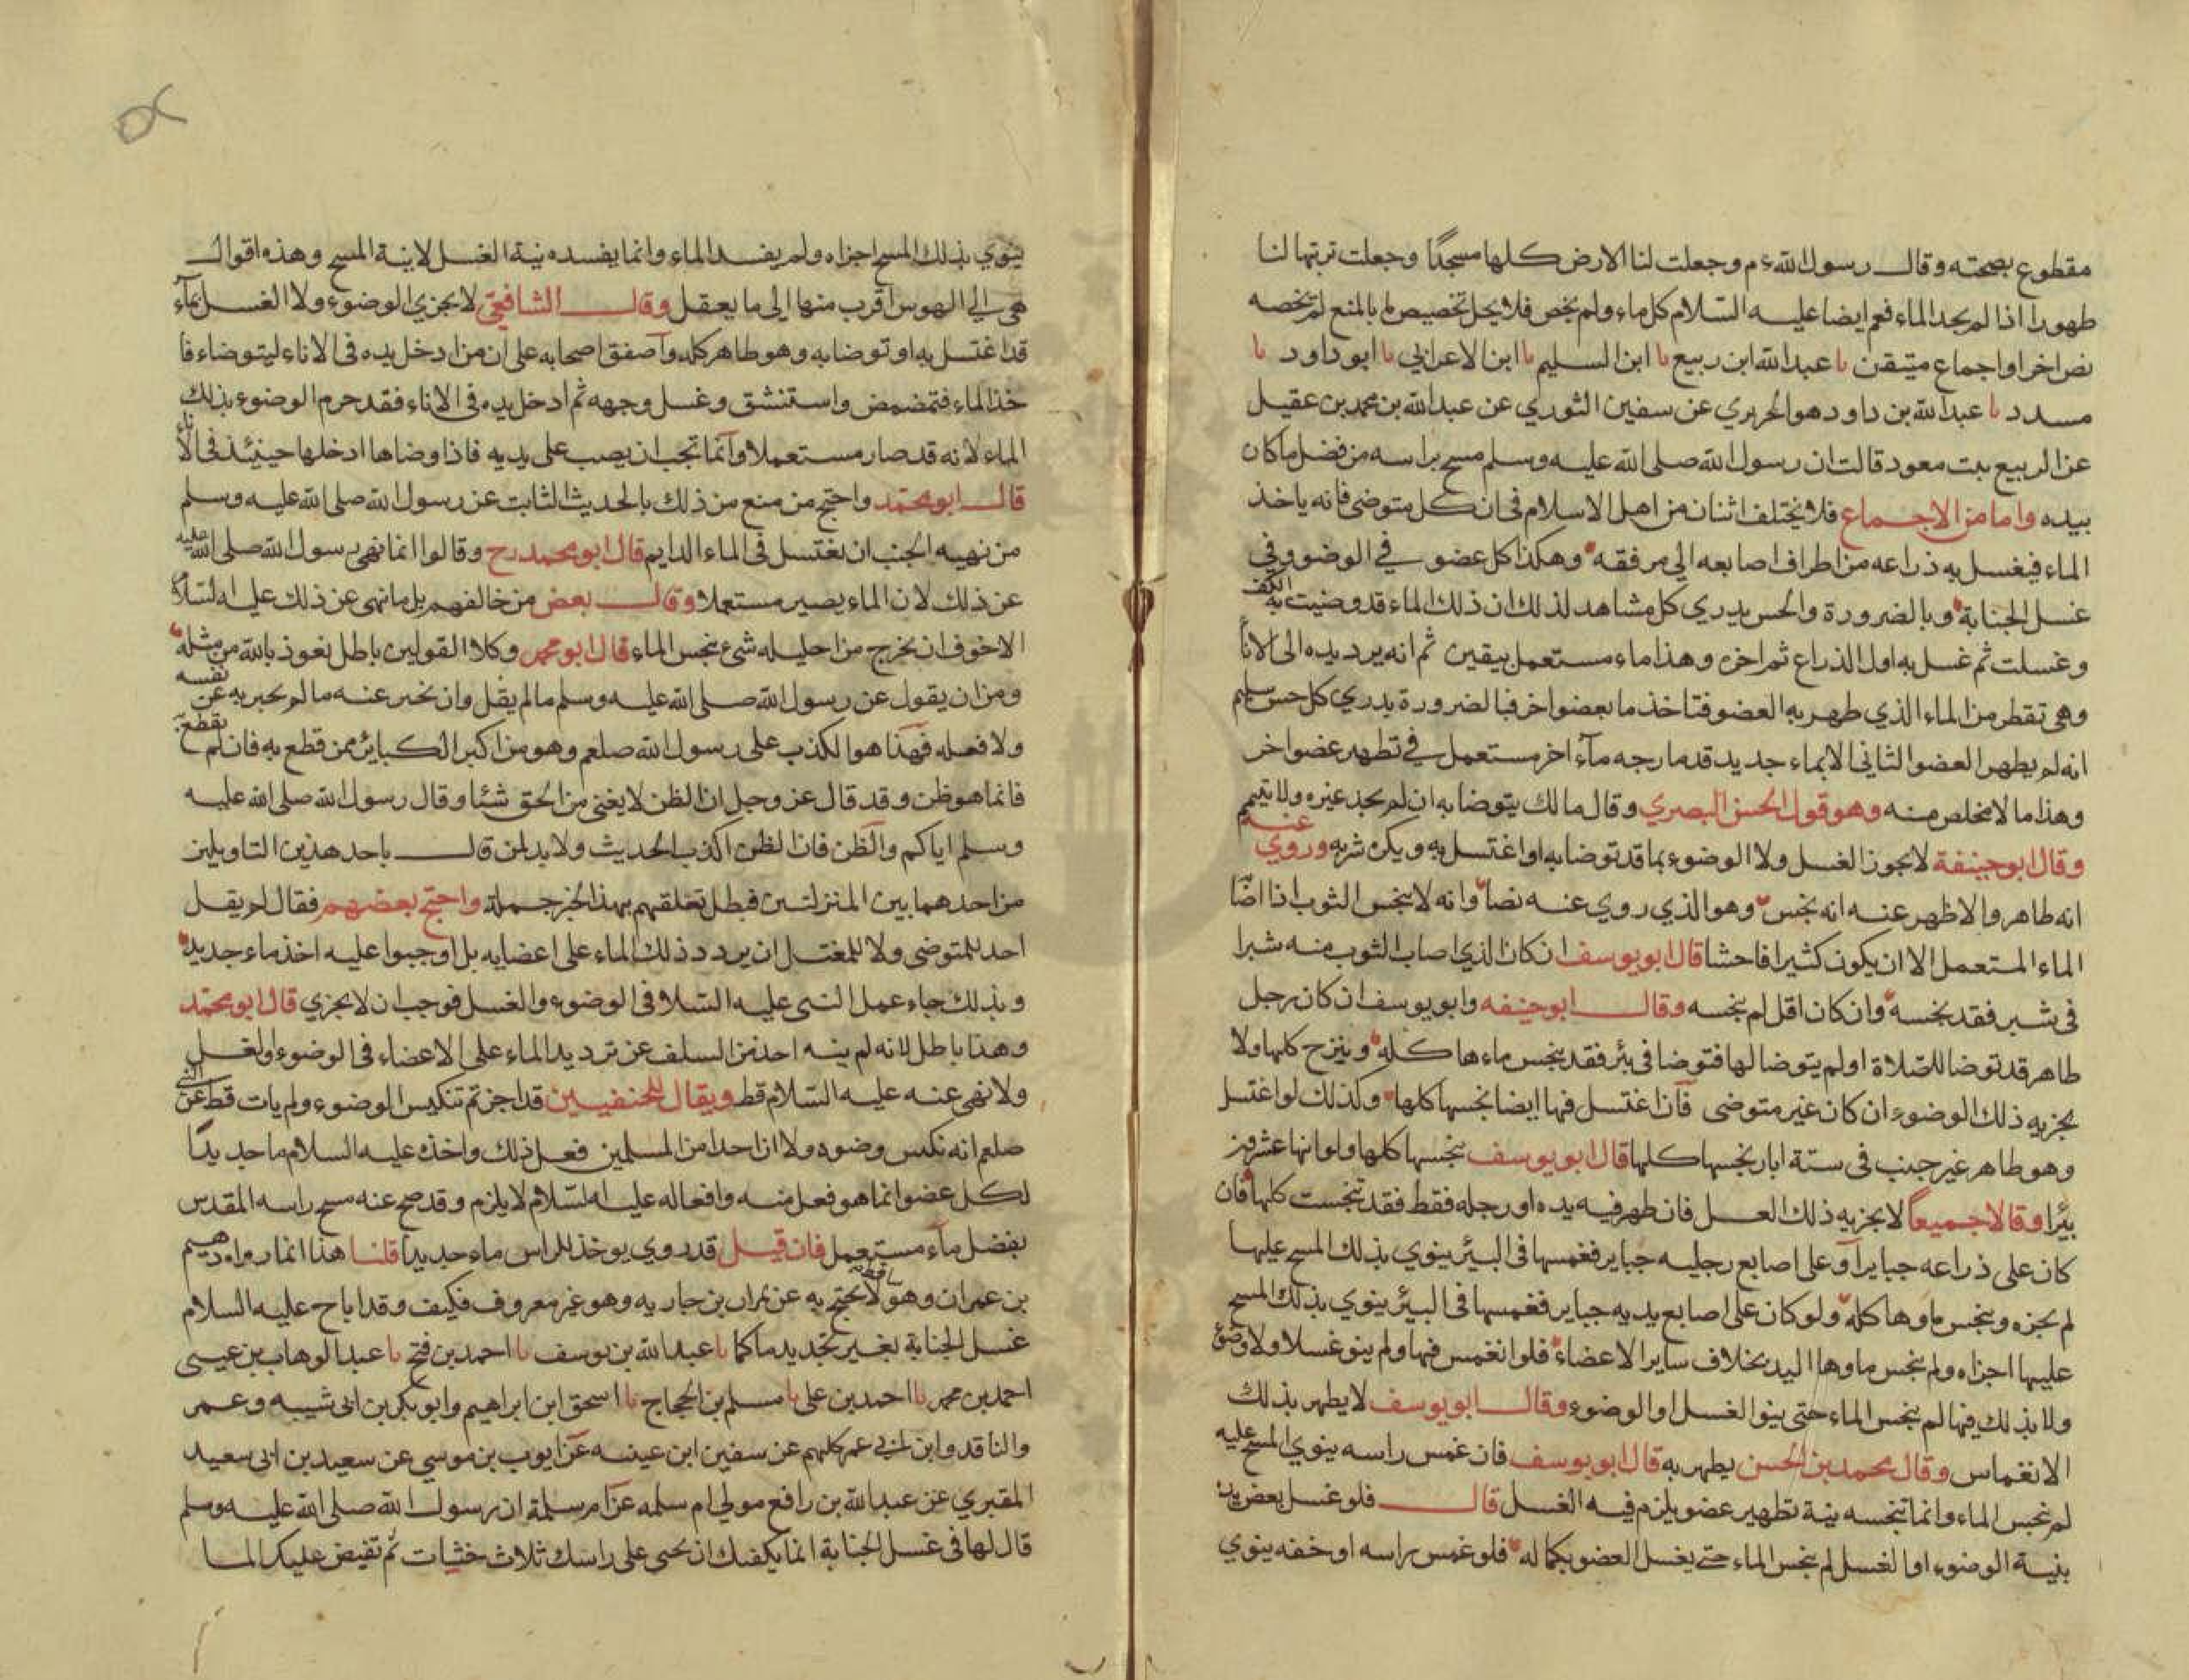 مقطوع بصحته وقال رسول الله ءم وجعلت لنا الارض كلها مسجدًا وجعلت تربتها لنا
طهورا اذا لم يجد الماء فعم ايضا عليه السّلام كل ماء ولم يخص فلا يحل تخصيص ما بالمنع لم يخصه
نص اخر او اجماع متيقن نا عبد الله ابن ربيع نا ابن السليم نا ابن الاعرابي نا ابو داود نا
مسدد نا عبد الله بن داود هو الحريري عن سفين الثوري عن عبد الله بن محمد بن عقيل
عن الربيع بنت معود قالت ان رسول الله صلى الله عليه وسلم مسح براسه من فضل ماء كان
بيده واما من الاجماع فلا يختلف اثنان من اهل الاسلام فى ان كل متوضى فانه ياخذ
الماء فيغسل به ذراعه من اطراف اصابعه الي مرفقه وهكذا كل عضو في الوضوء وفي
غسل الجنابة وبالضرورة والحس يدري كل مشاهد لذلك ان ذلك الماء قد وضيت به الكف
وغسلت ثم غسل به اول الذراع ثم اخره وهذا ماء مستعمل بيقين ثم انه يرد يده الى الانا
وهى تقطر من الماء الذي طهر به العضو فتاخذ ما بعضوا خر فبالضرورة يدري كل حس سليم
انه لم يطهر العضو الثاني الا بماء جديد قد مازجه مآء اخر مستعمل في تطهير عضو اخر
وهذا ما لا مخلص منه وهو قول الحسن البصري وقال مالك يتوضا به ان لم يجد غيره ولا يتيمم
وقال ابو حنيفة لا يجوز الغسل ولا الوضوء بما قد توضا به او اغتسل به ويكره شربه وروي عنه
انه طاهر والاظهر عنه انه نجس وهو الذي روي عنه نصا وانه لا ينجس الثوب اذا اصا
الماء المستعمل الا ان يكون كثيرا فاحشا قال ابو يوسف ان كان الذي اصاب الثوب منه شبرا
فى شبر فقد نجسه وان كان اقل لم ينجسه وقال ابو حنيفه وابو يوسف ان كان رجل
طاهر قد توضا للصّلاة اولم يتوضا لها فتوضا فى بئر فقد ينجس ماءها كله وينزح كلها ولا
يجزيه ذلك الوضوء ان كان غير متوضى فان اغتسل فيها ايضا نجسها كلها وكذلك لو اغتسل
وهو طاهر غير جنب فى ستة ابار نجسها كلها قال ابو يوسف ينجسها كلها ولو انها عشرون
بئرا وقالا جميعا لا يجزيه ذلك الغسل فان طهر فيه يده او رجله فقط فقد تنجست كلها فان
كان على ذراعه جباير او على اصابع رجليه جباير فغمسها فى البئر ينوي بذلك المسح عليها
لم يجزه وينجس ماوها كله ولو كان على اصابع يديه جباير فغمسها فى البئر ينوي بذلك المسح
عليها اجزاه ولم ينجس ماوها اليد بخلاف ساير الاعضاء فلو انغمس فيها ولم ينو غسلا ولا وضوء
ولا بذلك فيها لم ينجس الماء حتى ينو الغسل او الوضوء وقال ابو يوسف لا يطهر بذلك
الانغماس وقال محمد بن الحسن يطهر به قال ابو يوسف فان غمس راسه ينوي المسح عليه
لم ينجس الماء وانما تنجسه بنية تطهير عضو يلزم فيه الغسل قال فلو غسل بعض يده
بنية الوضوء او الغسل لم ينجس الماء حتى يغسل العضو بكماله فلو غمس راسه او خفه ينوي
ينوي بذلك المسح اجزاه ولم يفسد الماء وانما يفسده نية الغسل لا نية المسح وهذه اقوال
هى الي الهوس اقرب منها الى ما يعقل وقال الشافعى لا يجزي الوضوء ولا الغسل بمآء
قد اغتسل به او توضا به وهو طاهر كله وآصفق اصحابه على ان من ادخل يده فى الاناء ليتوضاء فا
خذ الماء فتمضمض واستنشق وغسل وجهه ثم ادخل يده فى الاناء فقد حرم الوضوء بذلك
الماء لانه قد صار مستعملا وآنما يجب ان يصب على يديه فاذا وضاها ادخلها حينئذ فى الاناء
قال ابو محمّد واحتج من منع من ذلك بالحديث الثابت عن رسول الله صلى الله عليه وسلم
من نهيه الجنب ان يغتسل فى الماء الدايم قال ابو محمد رح وقالوا انما نهى رسول الله صلى الله عليه
عن ذلك لان الماء يصير مستعملا وقال بعض من خالفهم بل ما نهى عن ذلك عليه السّلام
الا خوف ان يخرج من احليله شىء ينجس الماء قال ابو محمد وكلا القولين باطل نعوذ بالله من مثله
ومن ان يقول عن رسول الله صلى الله عليه وسلم ما لم يقل وان نخبر عنه ما لم يخبر به عن نفسه
ولا فعله فهذا هو الكذب على رسول الله صلعم وهو من اكبر الكبائر ممن قطع به فان لم يقطع به
فانما هو ظن وقد قال عز وجل ان الظن لا يغنى من الحق شئا وقال رسول الله صلى الله عليه
وسلم اياكم والظن فان الظن اكذب الحديث ولا بد لمن قال باحد هذين التاويلين
من احدهما بين المنزلتين فبطل تعلقهم بهذا الخبر جملة واحتج بعضهم فقال لم يقل
احد للمتوضى ولا للمغتسل ان يردد ذلك الماء على اعضايه بل اوجبوا عليه اخذ ماء جديد
وبذلك جاء عمل النبى عليه السّلام فى الوضوء والغسل فوجب ان لا يجزي قال ابو محمّد
وهذا باطل لانه لم ينه احد من السلف عن ترديد الماء على الاعضاء فى الوضوء والغسل
ولا نهى عنه عليه السّلام قط ويقال للحنفيين قد اجزتم تنكيس الوضوء ولم يات قط عن النبى
صلعم انه نكس وضوءه ولا ان احدا من المسلمين فعل ذلك واخذه عليه السلام ما جديدًا
لكل عضو انما هو فعل منه وافعاله عليه السّلام لا يلزم وقد صح عنه مسح راسه المقدس
بفضل مآء مستعمل فان قيل قد روي يوخذ للراس ماء جديدا قلنا هذا انما رواه دهيم
بن عمران وهو ساقط لا يحتج به عن نمران بن جاريه وهو غير معروف فكيف وقد اباح عليه السلام
غسل الجنابة بغير تجديد ما كما نا عبد الله بن يوسف نا احمد بن فتح نا عبد الوهاب بن عيسى
احمد بن محمد نا احمد بن على نا مسلم بن الحجاج نا اسحق ابن ابراهيم وابو بكر بن ابى شيبه وعمر
والناقد وابن ابي عمر كلهم عن سفين ابن عينه عن ايوب بن موسي عن سعيد بن ابى سعيد
المقبري عن عبد الله بن رافع مولي ام سلمه عن ام سلمة ان رسول الله صلى الله عليه وسلم
قال لها فى غسل الجنابة انما يكفيك ان تحثى على راسك ثلاث حثيات ثم تفيض عليك الما